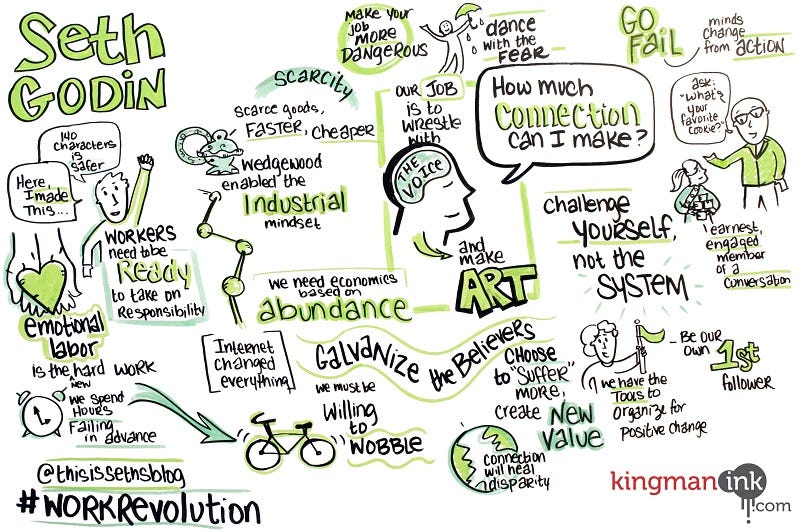 Seth
GODIN
MAKE YOUR
JOB
MORE
DANGEROUS
dance
with the
FEAR
GO
FAIL
minds
change
from action
SCARCITY
scarce goods,
FASTER, cheaper
OUR JOB
is to
wrestle
with
THE VOICE
and
make
ART
How much
connection
can I make?
ask:
"what's
your
favorite
cookie?"
earnest,
engaged
member
of a
conversation
140
characters
is
safer
Here,
I made
This...
WORKERS
need to be
Ready
to take on
Responsibility
Wedgewood
enabled the
Industrial
mindset
we need economics
based on
abundance
challenge
yourself,
not the
SYSTEM
emotional
labor
is the hard work
new
we spend
Hours
Failing
in advance
[Internet
changed
everything]
Galvanize the Believers
we must be
willing
to
WOBBLE
CHOOSE
to "suffer"
more,
create New
Value
connection
will heal
disparity
we have the
Tools to
organize for
positive change
- Be our
own 1st
follower
@thisissethsblog
#WORKREVOLUTION
kingman ink
.com